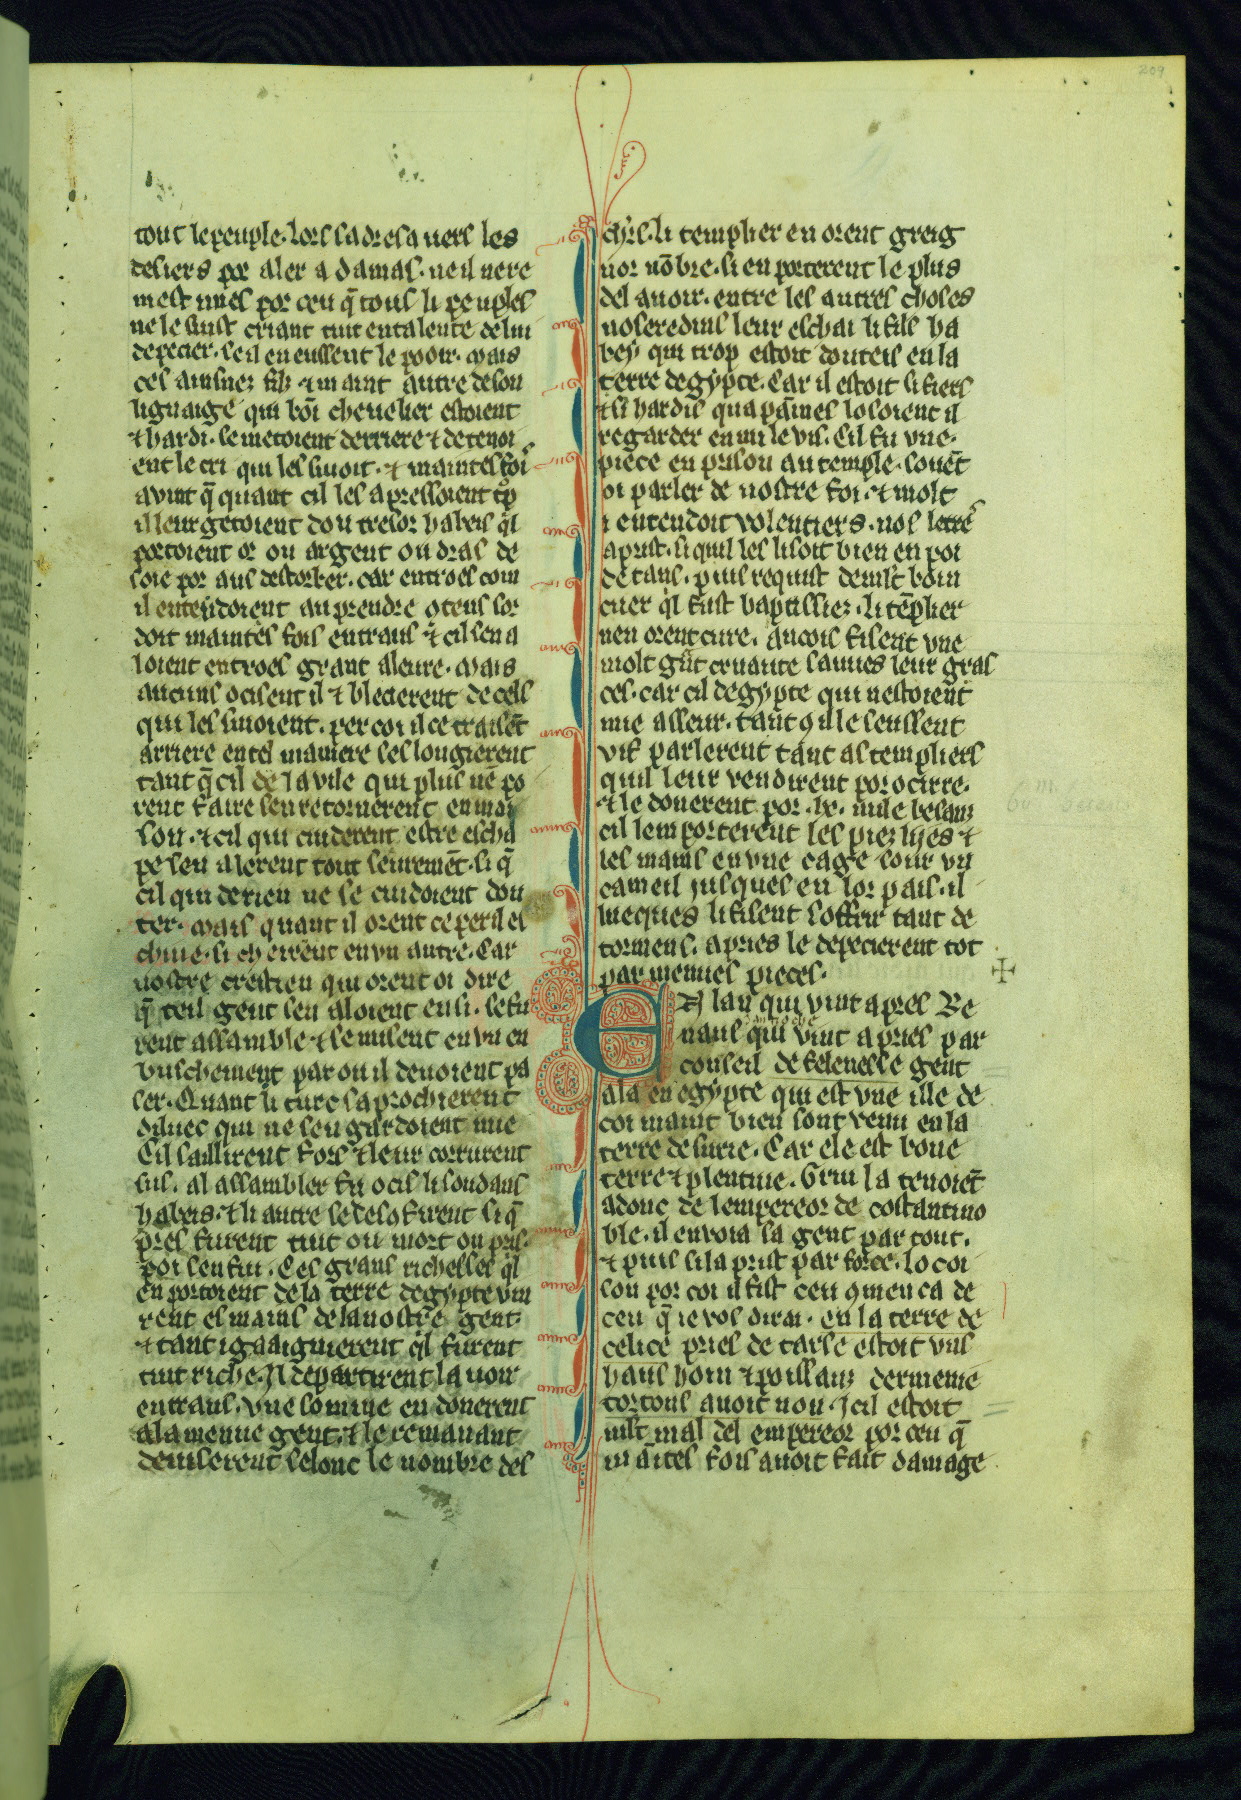 209
tout le peuple. lors sadresa uers les
desiers por aler a damas. ne il nere
mest mies por ceu q̃ tous li peuples
ne le suist criant tuit entalente de lui
depecier. se il en eussent le pooir. mais
ces ainsnez filz ⁊ maint autre de son
lignaige qui bõ cheuelier estoient
⁊ hardi. se metoient derriere ⁊ detenoi
ent le cri qui les siuoit. ⁊ maintes foi
auint q̃ quant cil les apressoient trop
il leur getoient dou tresor habeis q̃l
portoient or ou argent ou dras de
soie por aus destorber. car entroes com
il entendoient au prendre
doit maintes fois entraus ⁊ cil sen a
loient entroes grant aleure. mais
aucuns ocisent il ⁊ blecierent de cels
qui les siuoient. per coi il ce traisẽt
arriere en tel maniere ses lougierent
tant q̃ cil de la vile qui plus nẽ po
rent faire sen retornerent en mai
son. ⁊ cil qui cuiderent estre escha
pe sen alerent tout seurement. si q̃
cil qui de rien ne se cuidoient dou
ter. mais quant il orent ce peril es
chiue. si cheirent en vn autre. Car
nostre crestien qui orent oi dire
q̃ teil gent sen aloient ensi. se fu
rent assamble ⁊ se misent en vn en
buschement par ou il deuoient pa
ser. Quant li turc saprochierent
diluec qui ne sen gardoient mie
Cil saillirent fors ⁊ leur corrurent
sus. al assambler fu ocis li soudans
habeis. ⁊ li autre se desofirent si q̃
pres furent tuit ou mort ou pris.
poi sen fui. Ces grans richesses q̃l
en portoient de la terre degypte vin
rent es mains de la nostre gent.
⁊ tant i gaaignierent q̃l furent
tuit riche. Il departirent lauoir
entraus. vne somme en donerent
a la menue gent. ⁊ le remanant
deuiserent selonc le nombre des
ch'rs. li templier en orent greig
nor nõbre. si en porterent le plus
del auoir. entre les autres choses
noseredins leur eschai li fils ha
beys qui trop estoit douteis en la
terre degypte. Car il estoit si fiers
⁊ si hardis qua paines losoient il
regarder en mi le vis. Cil fu vne
piece en prison au temple. souẽt
oi parler de nostre foi. ⁊ molt
i entendoit volentiers. nos letres
aprist. si quil les lisoit bien en poi
de tans. puis requist de mlt boin
cuer q̃l fust baptissiez. li tẽplier
nen orent cure. ancois fisent vne
molt grant cruaute
ces. car cil degypte qui nestoient
mie asseur. tant 9 il le seussent
vif parlerent tant as templiers
quil leur vendirent por ocirre.
⁊ le donerent por .lx. mile besanz
cil lem porterent les piez liies ⁊
les mains en vne cage sour vn
cameil jusques en lor pais. il
lueques li fisent soffrir tant de
tormens. apries le depecierent tot
par menues pieces.
El an qui vint apres Re
naus qui vint apries par
conseil de felenesse gent
ala en egypte qui est vne ille de
coi maint bien sont venu en la
terre de surie. Car ele est bone
terre ⁊ plentiue. Griu la tenoiẽt
adonc de lempereor de costantino
ble. il enuoia sa gent par tout.
⁊ puis si la prist par force. locoi
son por coi il fist ceu 9menca de
ceu q̃ ie vos dirai. en la terre de
celice pries de tarse estoit vns
haus hom ⁊ poissanz dermenie
tortous auoit non. Icil estoit
mlt mal del empereor por ceu q̃
maintes fois auoit fait damage